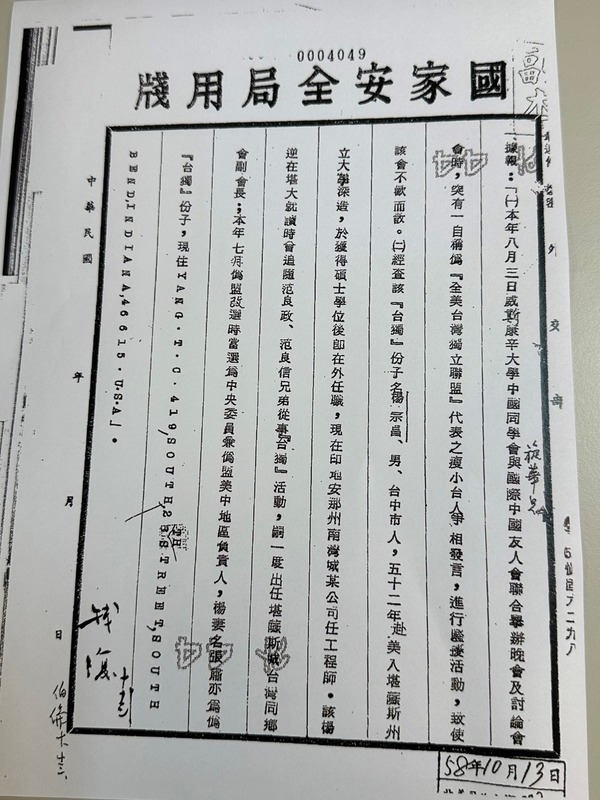 0004049
國家安全局用牋
一、據報：「㈠本年八月三日威斯康辛大學中國同學會與國際中國友人會聯合舉辦晚會及討論會
會時，突有一自稱僞『全美台灣獨立聯盟』代表之瘦小台人爭相發言，進行騷擾活動，致使
該會不歡而散。㈡經查該『台獨』份子名楊宗昌、男、台中市人，五十二年赴美入堪薩斯州
立大學深造，於獲得碩士學位後即在外任職，現在印地安那州南灣城某公司任工程師。該楊
逆在堪大就讀時曾追隨范良政、范良信兄弟從事『台獨』活動，嗣一度出任堪薩斯城台灣同鄉
會副會長；本年七月僞盟改選時當選爲中央委員兼僞盟美中地區負責人，楊妻名張蕭亦爲僞
『台獨』份子，現住YANG．T．C．419，SOUTH，28TH STREET，SOUTH
BEND，INDIANA，46615．U．S．A」。
中華民國
年
月
日
外交部
58年10月13日